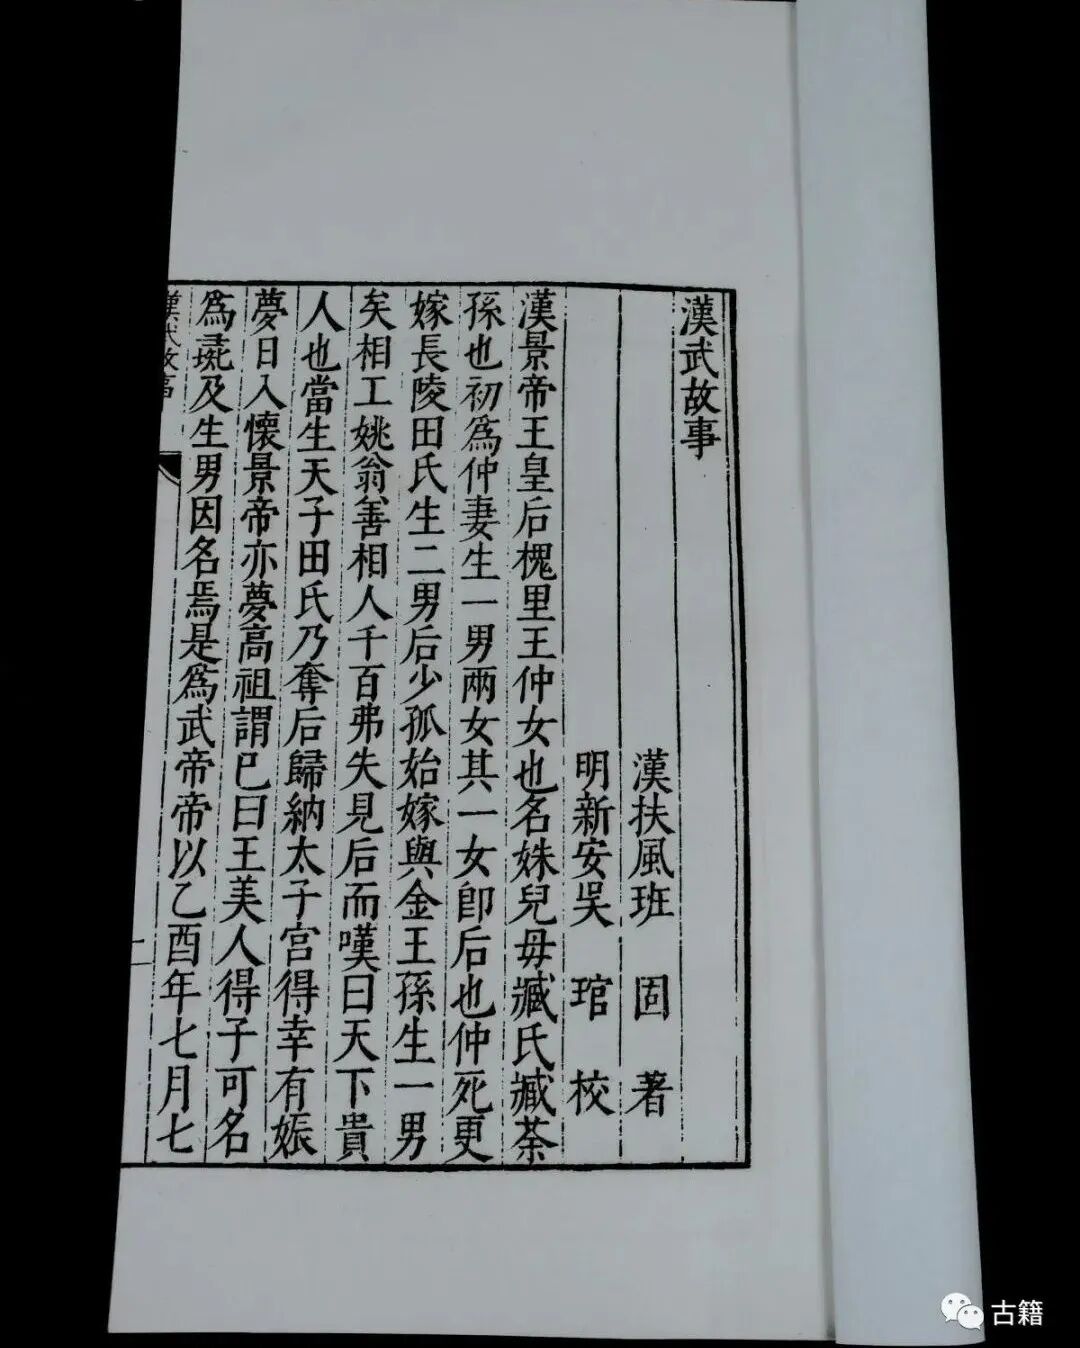 漢武故事
漢扶風班固著
明新安吳琯校
漢景帝王皇后槐里王仲女也名姝兒毋臧氏臧荼
孫也初為仲妻生一男兩女其一女即后也仲死更
嫁長陵田氏生二男后少孤始嫁與金王孫生一男
矣相工姚翁善相人千百弗失見后而嘆曰天下貴
人也當生天子田氏乃奪后歸納太子宮得幸有娠
夢日入懷景帝亦夢高祖謂己曰王美人得子可名
為彘及生男因名焉是為武帝帝以乙酉年七月七
漢武故事
一
古籍